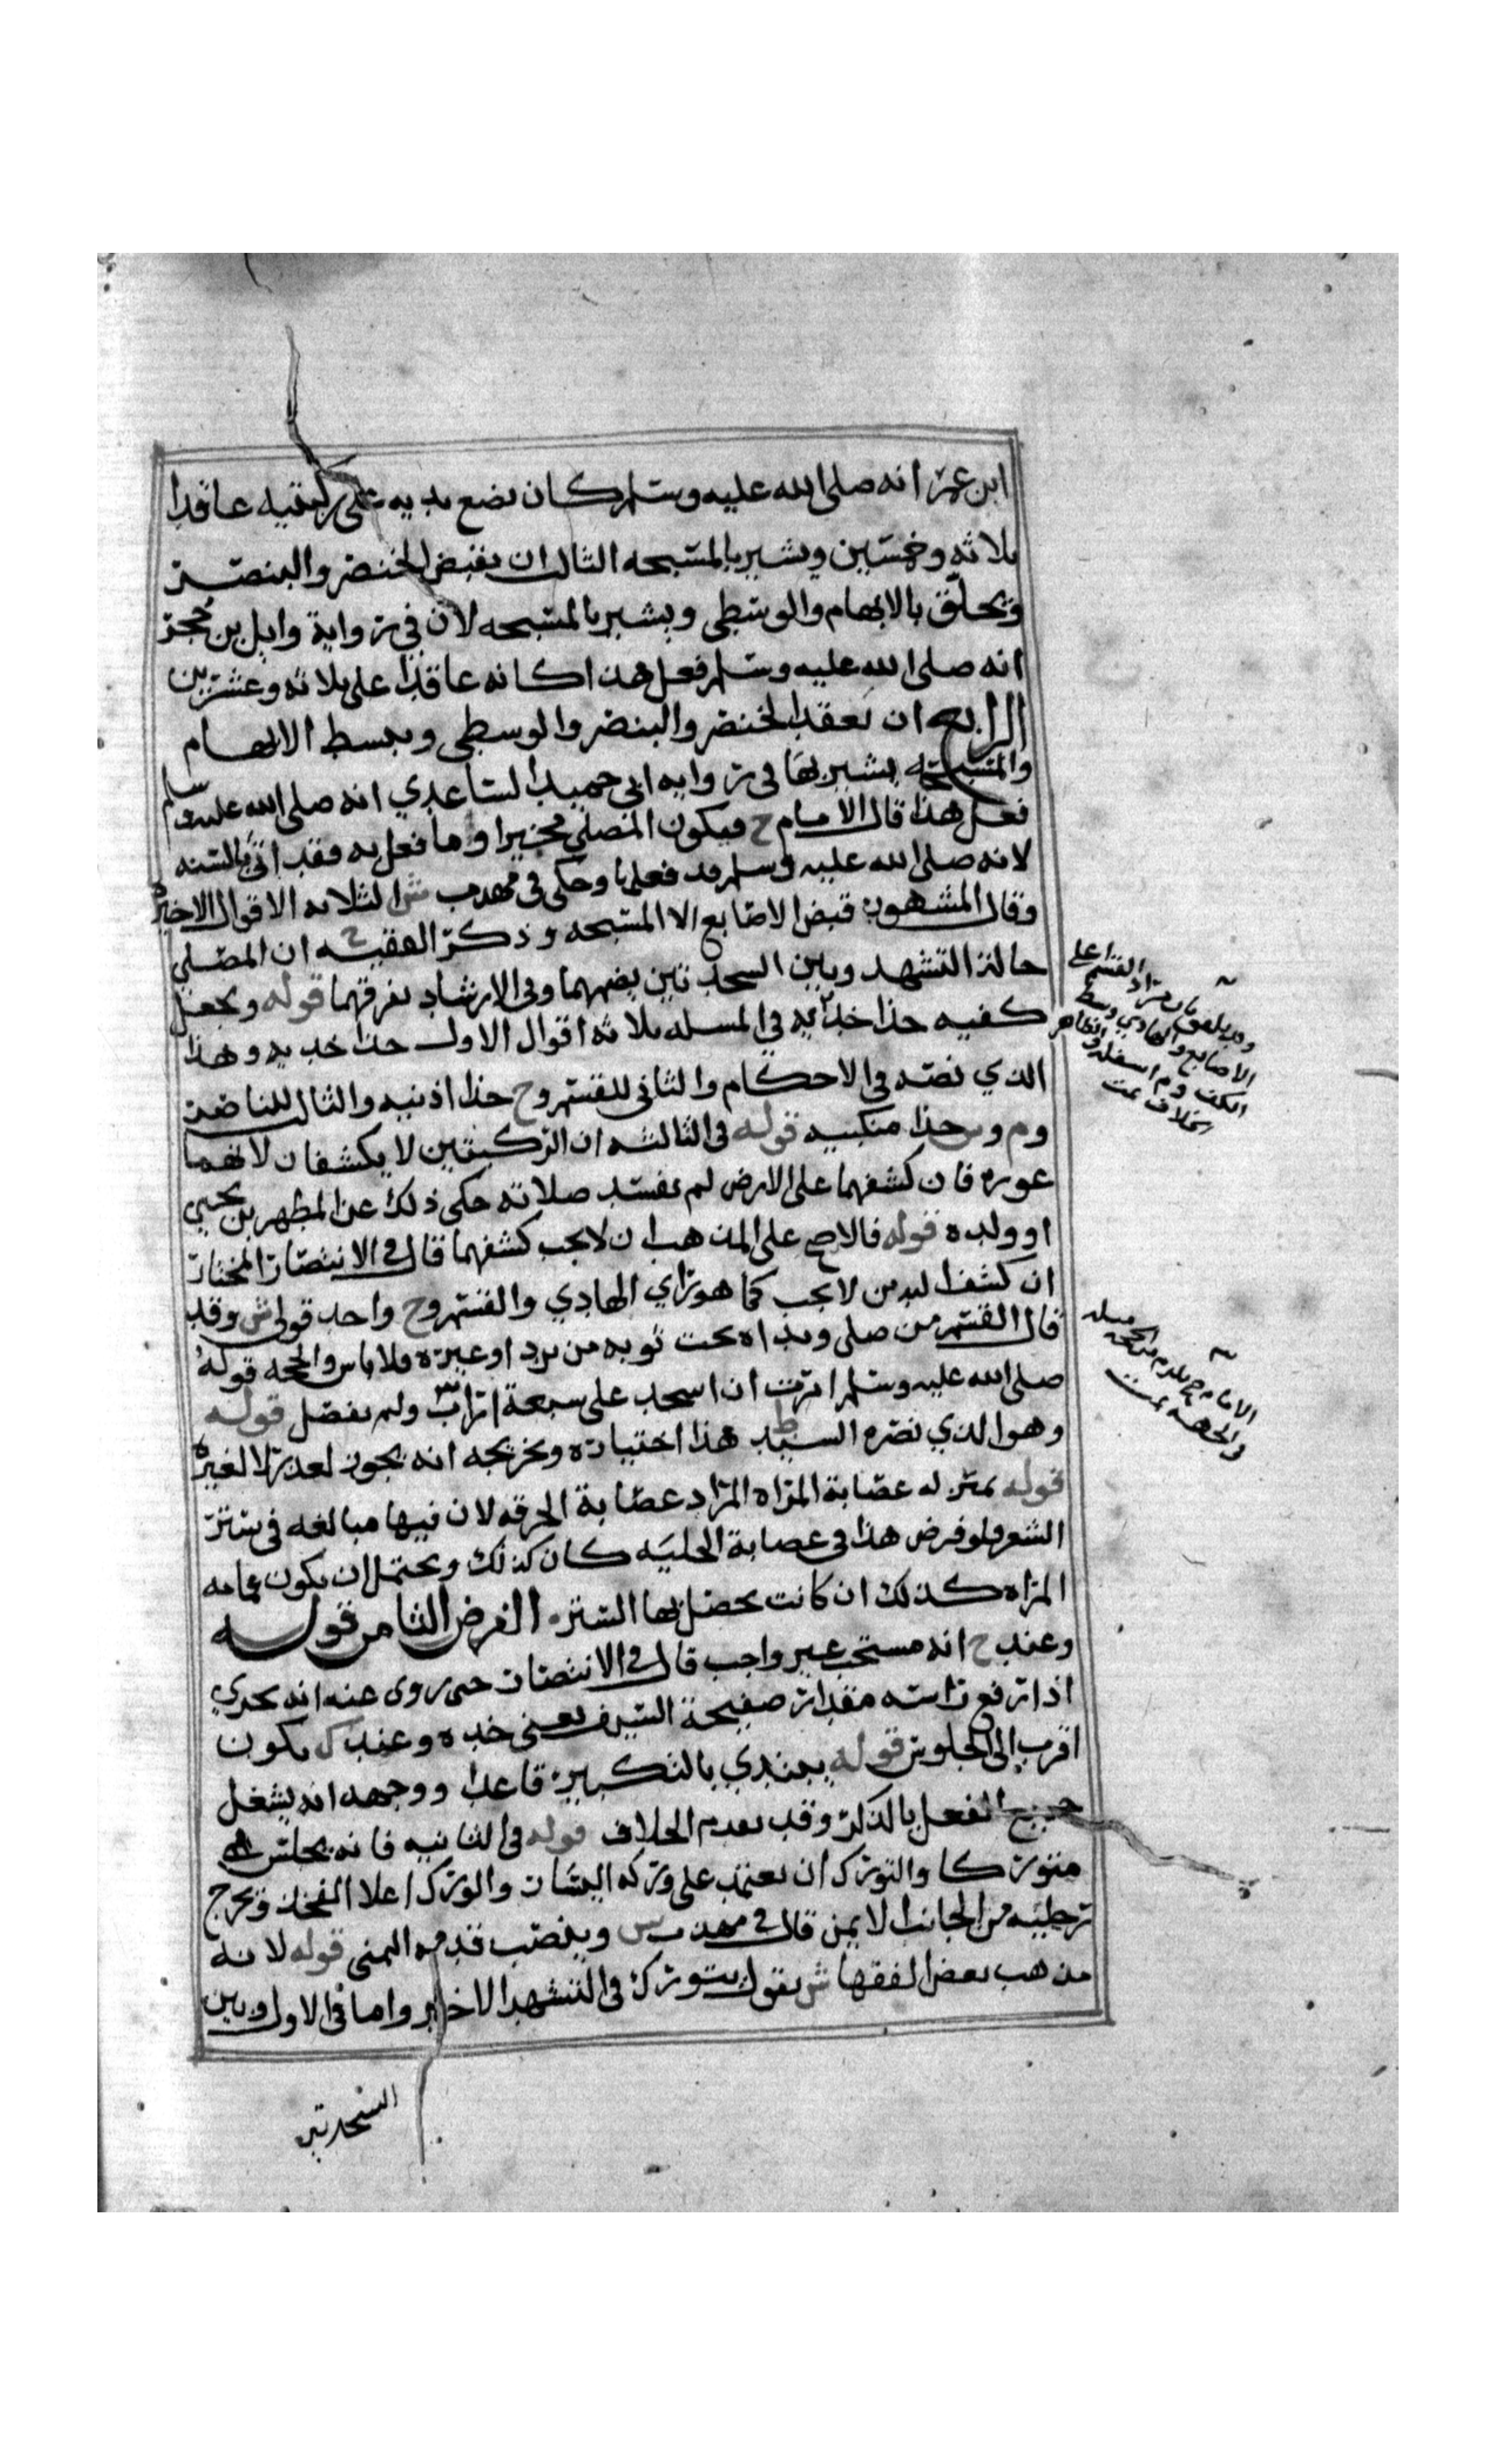 ابن عمر انه صلى الله عليه وسلم كان يضع يديه على ركبتيه عاقدا
ثلاثه وخمسين ويشير بالمسبحه الثالث ان يقبض الخنصر والبنصر
ويحلق بالابهام والوسطى ويشير بالمسبحه لان في رواية وايل بن حجر
انه صلى الله عليه وسلم فعل هذا كانه عاقدا على ثلاثه وعشرين
الرابع ان يعقد الخنصر والبنصر والوسطى ويبسط الابهام
والمسبحه يشير بها في روايه ابي حميد الساعدي انه صلى الله عليه وسلم
فعل هذا قال الامام ح فيكون المصلي مخيرا وما فعل به فقد اتى بالسنه
لانه صلى الله عليه وسلم قد فعلها وحكى في مهذب ش الثلاثه الاقوال الاخيره
وقال المشهور قبض الاصابع الا المسبحه وذكر الفقيه ح ان المصلي
حالة التشهد وبين السجدتين يضمهما وفي الارشاد يفرقهما قوله ويجعل
كفيه حذا خديه في المسله ثلاثه اقوال الاول حذا خديه وهذا
الذي نصه في الاحكام والثاني للقسم وح حذا اذنيه والثالث للناصر
وم وس حذا منكبيه قوله في الثالثه ان الركبتين لا يكشفان لانهما
عوره فان كشفهما على الارض لم تفسد صلاته حكى ذلك عن المطهر بن يحيى
او ولده قوله فالاصح على المذهب ان لا يجب كشفهما قال في الانتصار المختار
ان كشف اليدين لا يجب كما هو راي الهادي والقسم وح واحد قولي ش وقد
قال القسم من صلى ويداه تحت ثوبه من برد او غيره فلا باس والحجه قوله
صلى الله عليه وسلم امرت ان اسجد على سبعة اراب ولم يفصل قوله
وهو الذي نصره السيد ط هذا اختياره وتخريجه انه يجوز لعذر لا لغيره
قوله بمنزله عصابة المراه المراد عصابة الحرقه لان فيها مبالغه في ستر
الشعر فلو فرض هذا في عصابة الحليه كان كذلك ويحتمل ان يكون عمامه
المراه كذلك ان كانت يحصل بها الستر الفرض الثامن قوله
وعند ح انه مستحب غير واجب قال في الانتصار حتى روى عنه انه يجزي
اذا رفع راسه مقدار صفيحة السيف يعني خده وعند ك يكون
اقرب الى الجلوس قوله يبتدي بالتكبير قاعدا ووجهه انه يشغل
جميع الفعل بالذكر وقد تقدم الخلاف قوله في الثانيه فانه يجلس
متوركا والتورك ان يعتمد على وركه اليسار والورك اعلا الفخذ ويخرج
رجليه من الجانب الايمن قال في مهذب ش وينصب قدمه اليمنى قوله لانه
مذهب بعض الفقها ش يقول يتورك في التشهد الاخير واما في الاول وبين
السجدتين
الاصابع والهادي وسط
الكف وم اسفله والظاهر
الخلاف تمت